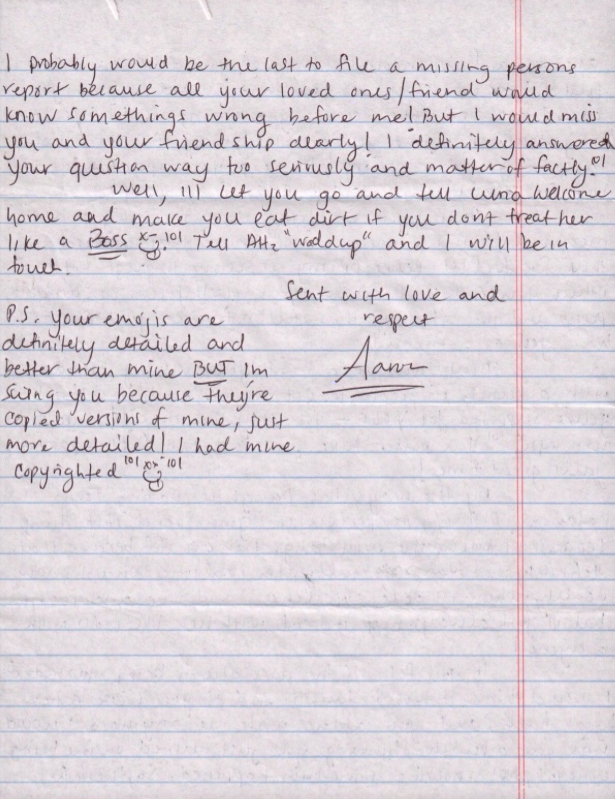 I probably would be the last to file a missing persons
report because all your loved ones/friend would
know somethings wrong before me! But I would miss
you and your friendship dearly! I definitely answered
your question way too seriously and matter of factly. lol
Well, ill let you go and tell welcome
home and make you eat dirt if you dont treat her
like a Boss lol Tell AHz "woddup" and I will be in
touch.
Sent with love and
respect
Aaron
P.S. your emojis are
definitely detailed and
better than mine BUT Im
suing you because they're
copied versions of mine, just
more detailed! I had mine
copyrighted lol lol